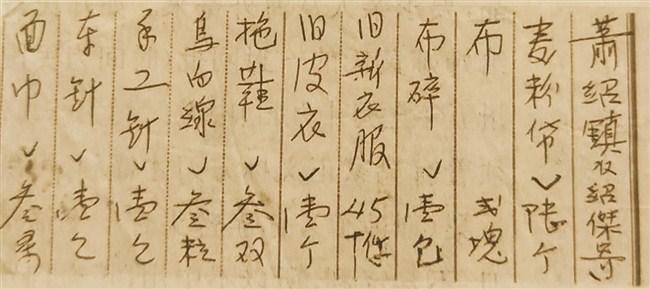 蕭紹鎮及紹傑
麦粉袋 ✓ 陆个
布 弍塊
布碎 ✓ 壹包
旧新衣服 45件
旧皮衣 ✓ 壹个
拖鞋 ✓ 叁双
烏白線 ✓ 叁粒
手工針 ✓ 壹
车針 ✓ 壹
面巾 ✓ 叁